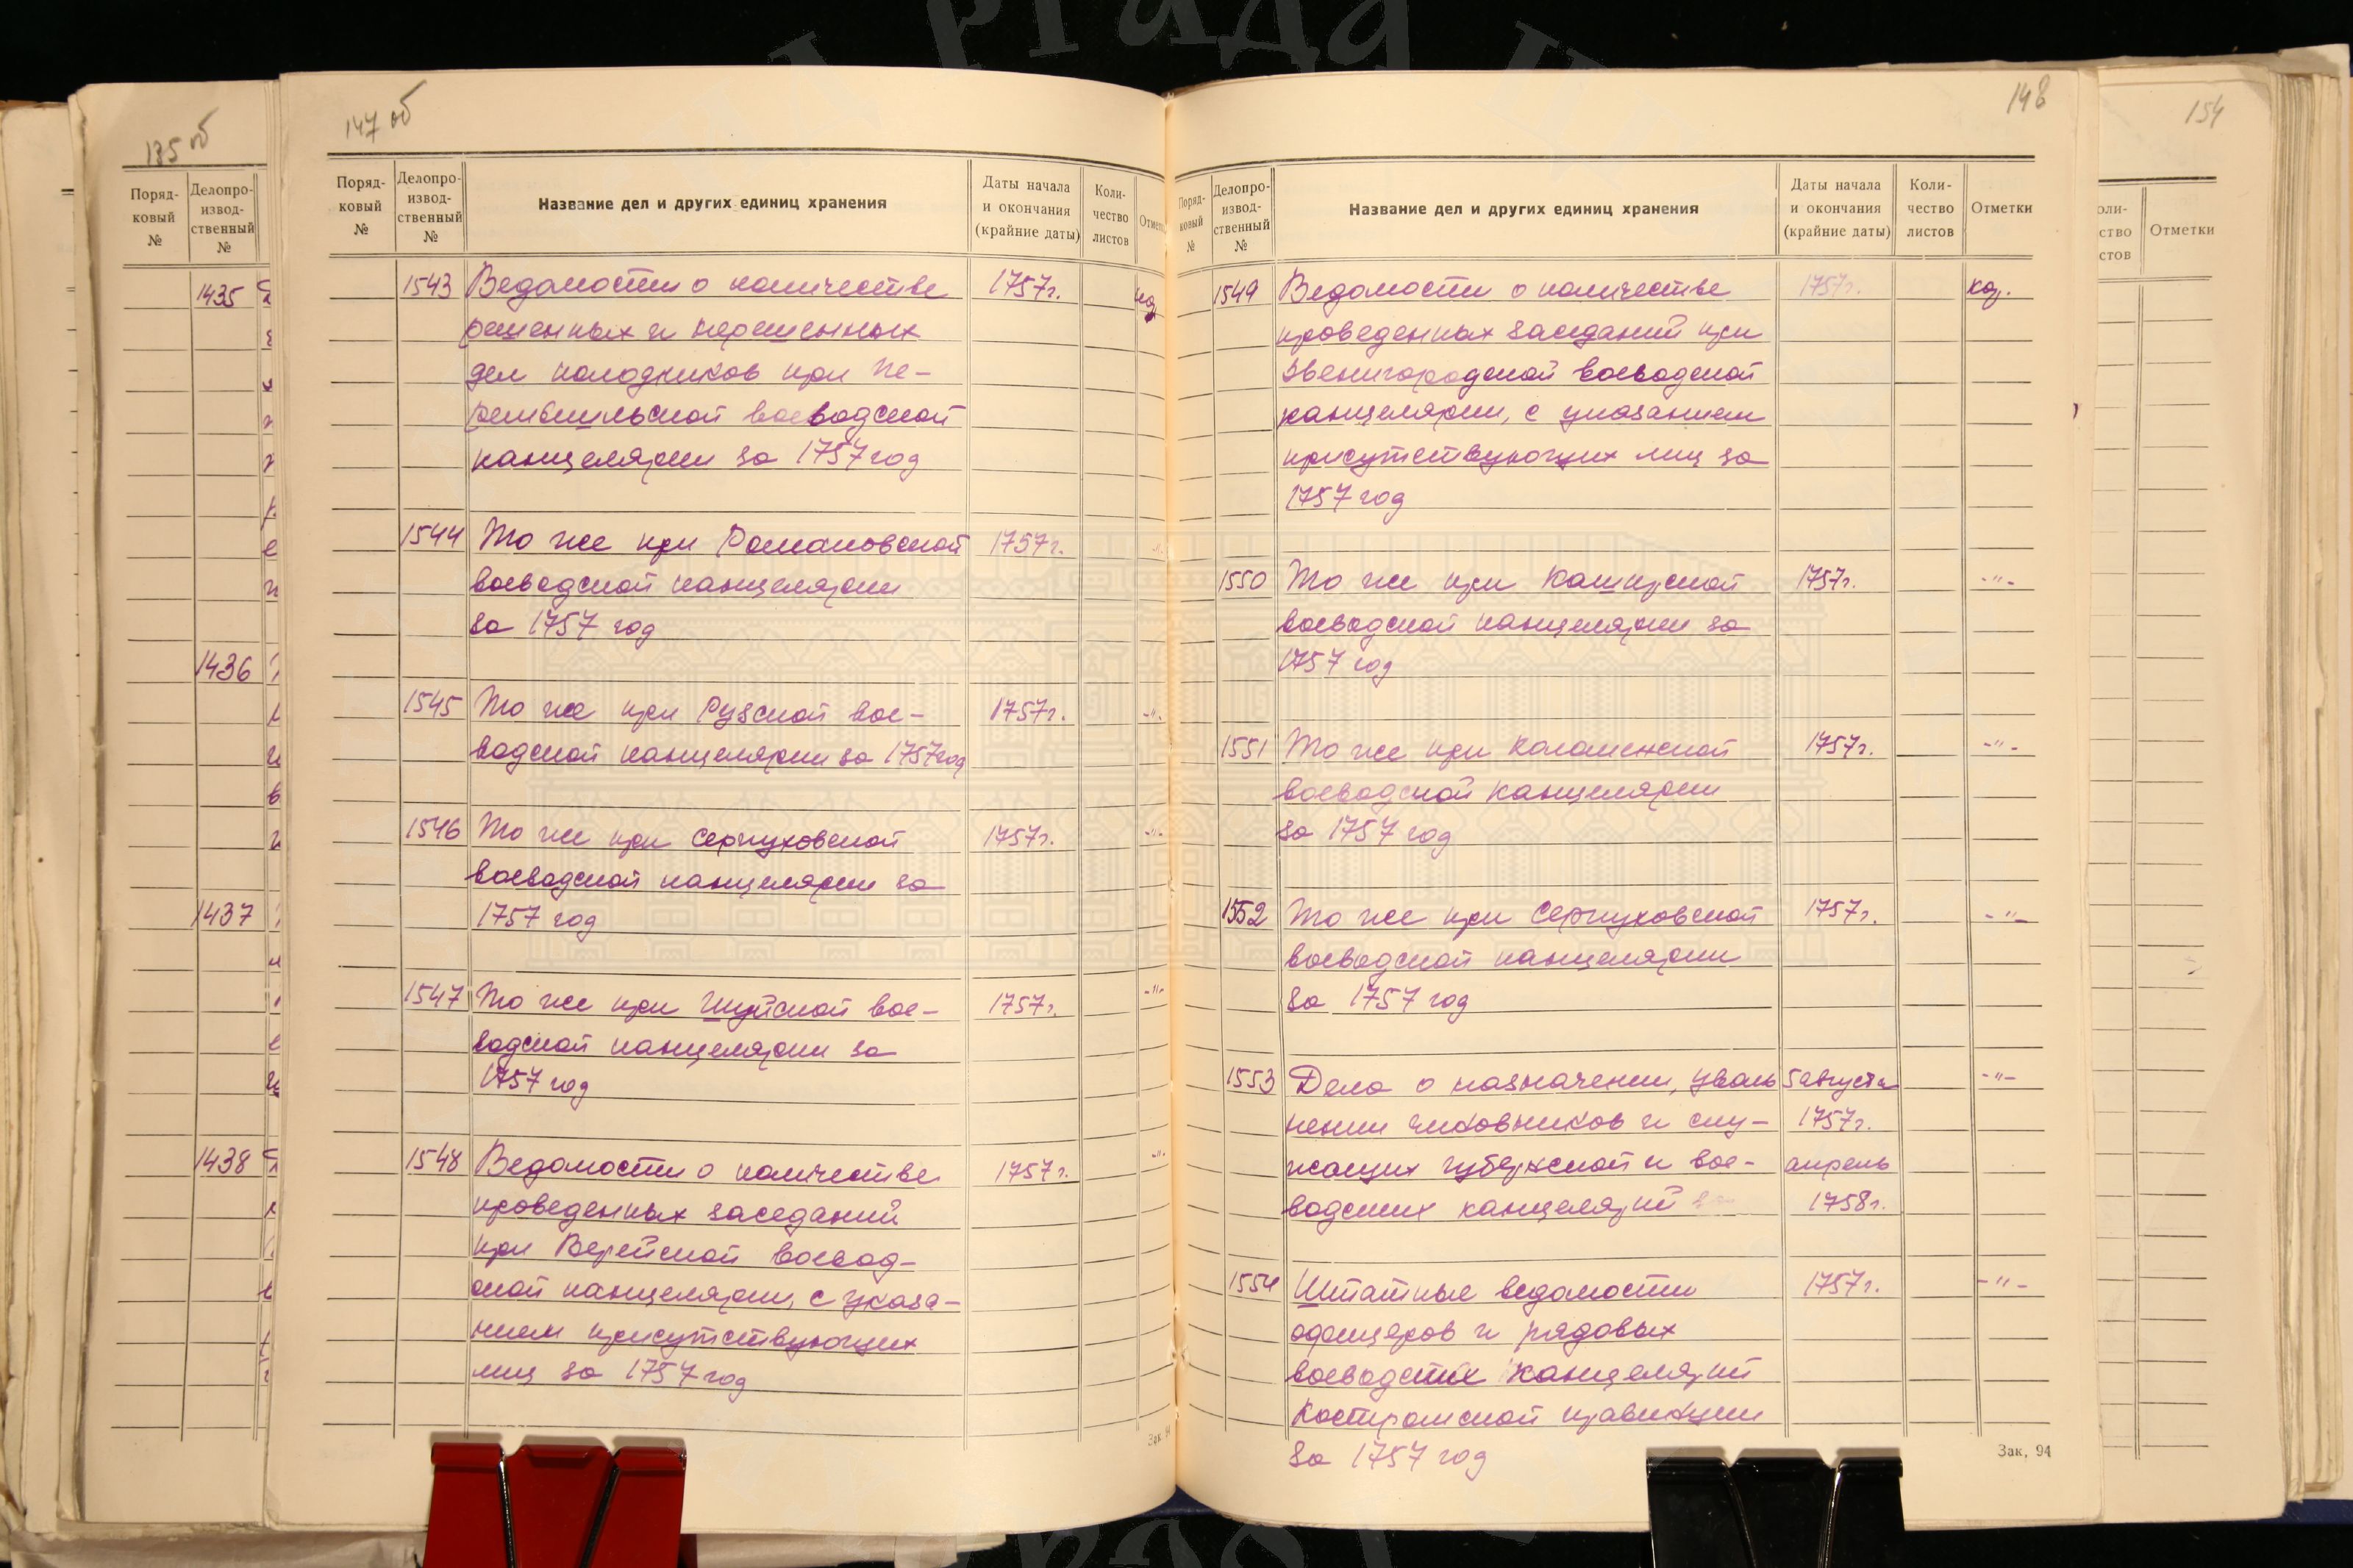 185 об
Поряд-
ковый
№
Делопро-
извод-
ственный
№
1435
1436
1437
1438
147 об
Поряд-
ковый
№
Делопро-
извод-
ственный
№
Название дел и других единиц хранения
Даты начала
и окончания
(крайние даты)
Коли-
чество
листов
1543 Ведомости о количестве 1757г.
решенных и нерешенных
дел колодников при Пе-
ремышльской воеводской
канцелярии за 1757 год
1544 То же при Романовской 1757г.
воеводской канцелярии
за 1757 год
1545 То же при Рузской вое- 1757г. -"-
водской канцелярии за 1757 год
1546 То же при Серпуховской 1757г. -"-
воеводской канцелярии за
1757 год
1547 То же при Шуйской вое- 1757г. -"-
водской канцелярии за
1757 год
1548 Ведомости о количестве 1757г. -"-
проведенных заседаний
при Верейской воевод-
ской канцелярии, с указа-
нием присутствующих
лиц за 1757 год
148
Поряд-
ковый
№
Делопро-
извод-
ственный
№
Название дел и других единиц хранения
Даты начала
и окончания
(крайние даты)
Коли-
чество
листов
Отметки
1549 Ведомости о количестве 1757г.
проведенных заседаний при
Звенигородской воеводской
канцелярии, с указанием
присутствующих лиц за
1757 год
1550 То же при Каширской 1757г. -"-
воеводской канцелярии за
1757 год
1551 То же при Коломенской 1757г. -"-
воеводской канцелярии
за 1757 год
1552 То же при Серпуховской 1757г. -"-
воеводской канцелярии
за 1757 год
1553 Дела о назначении, уволь 5 августа -"-
нении чиновников и слу- 1757г.
жащих губернской и вое- апрель
водских канцелярий 1758г.
1554 Штатные ведомости 1757г. -"-
офицеров и рядовых
воеводских канцелярий
Костромской правинции
за 1757 год
Зак. 94
154
Отметки